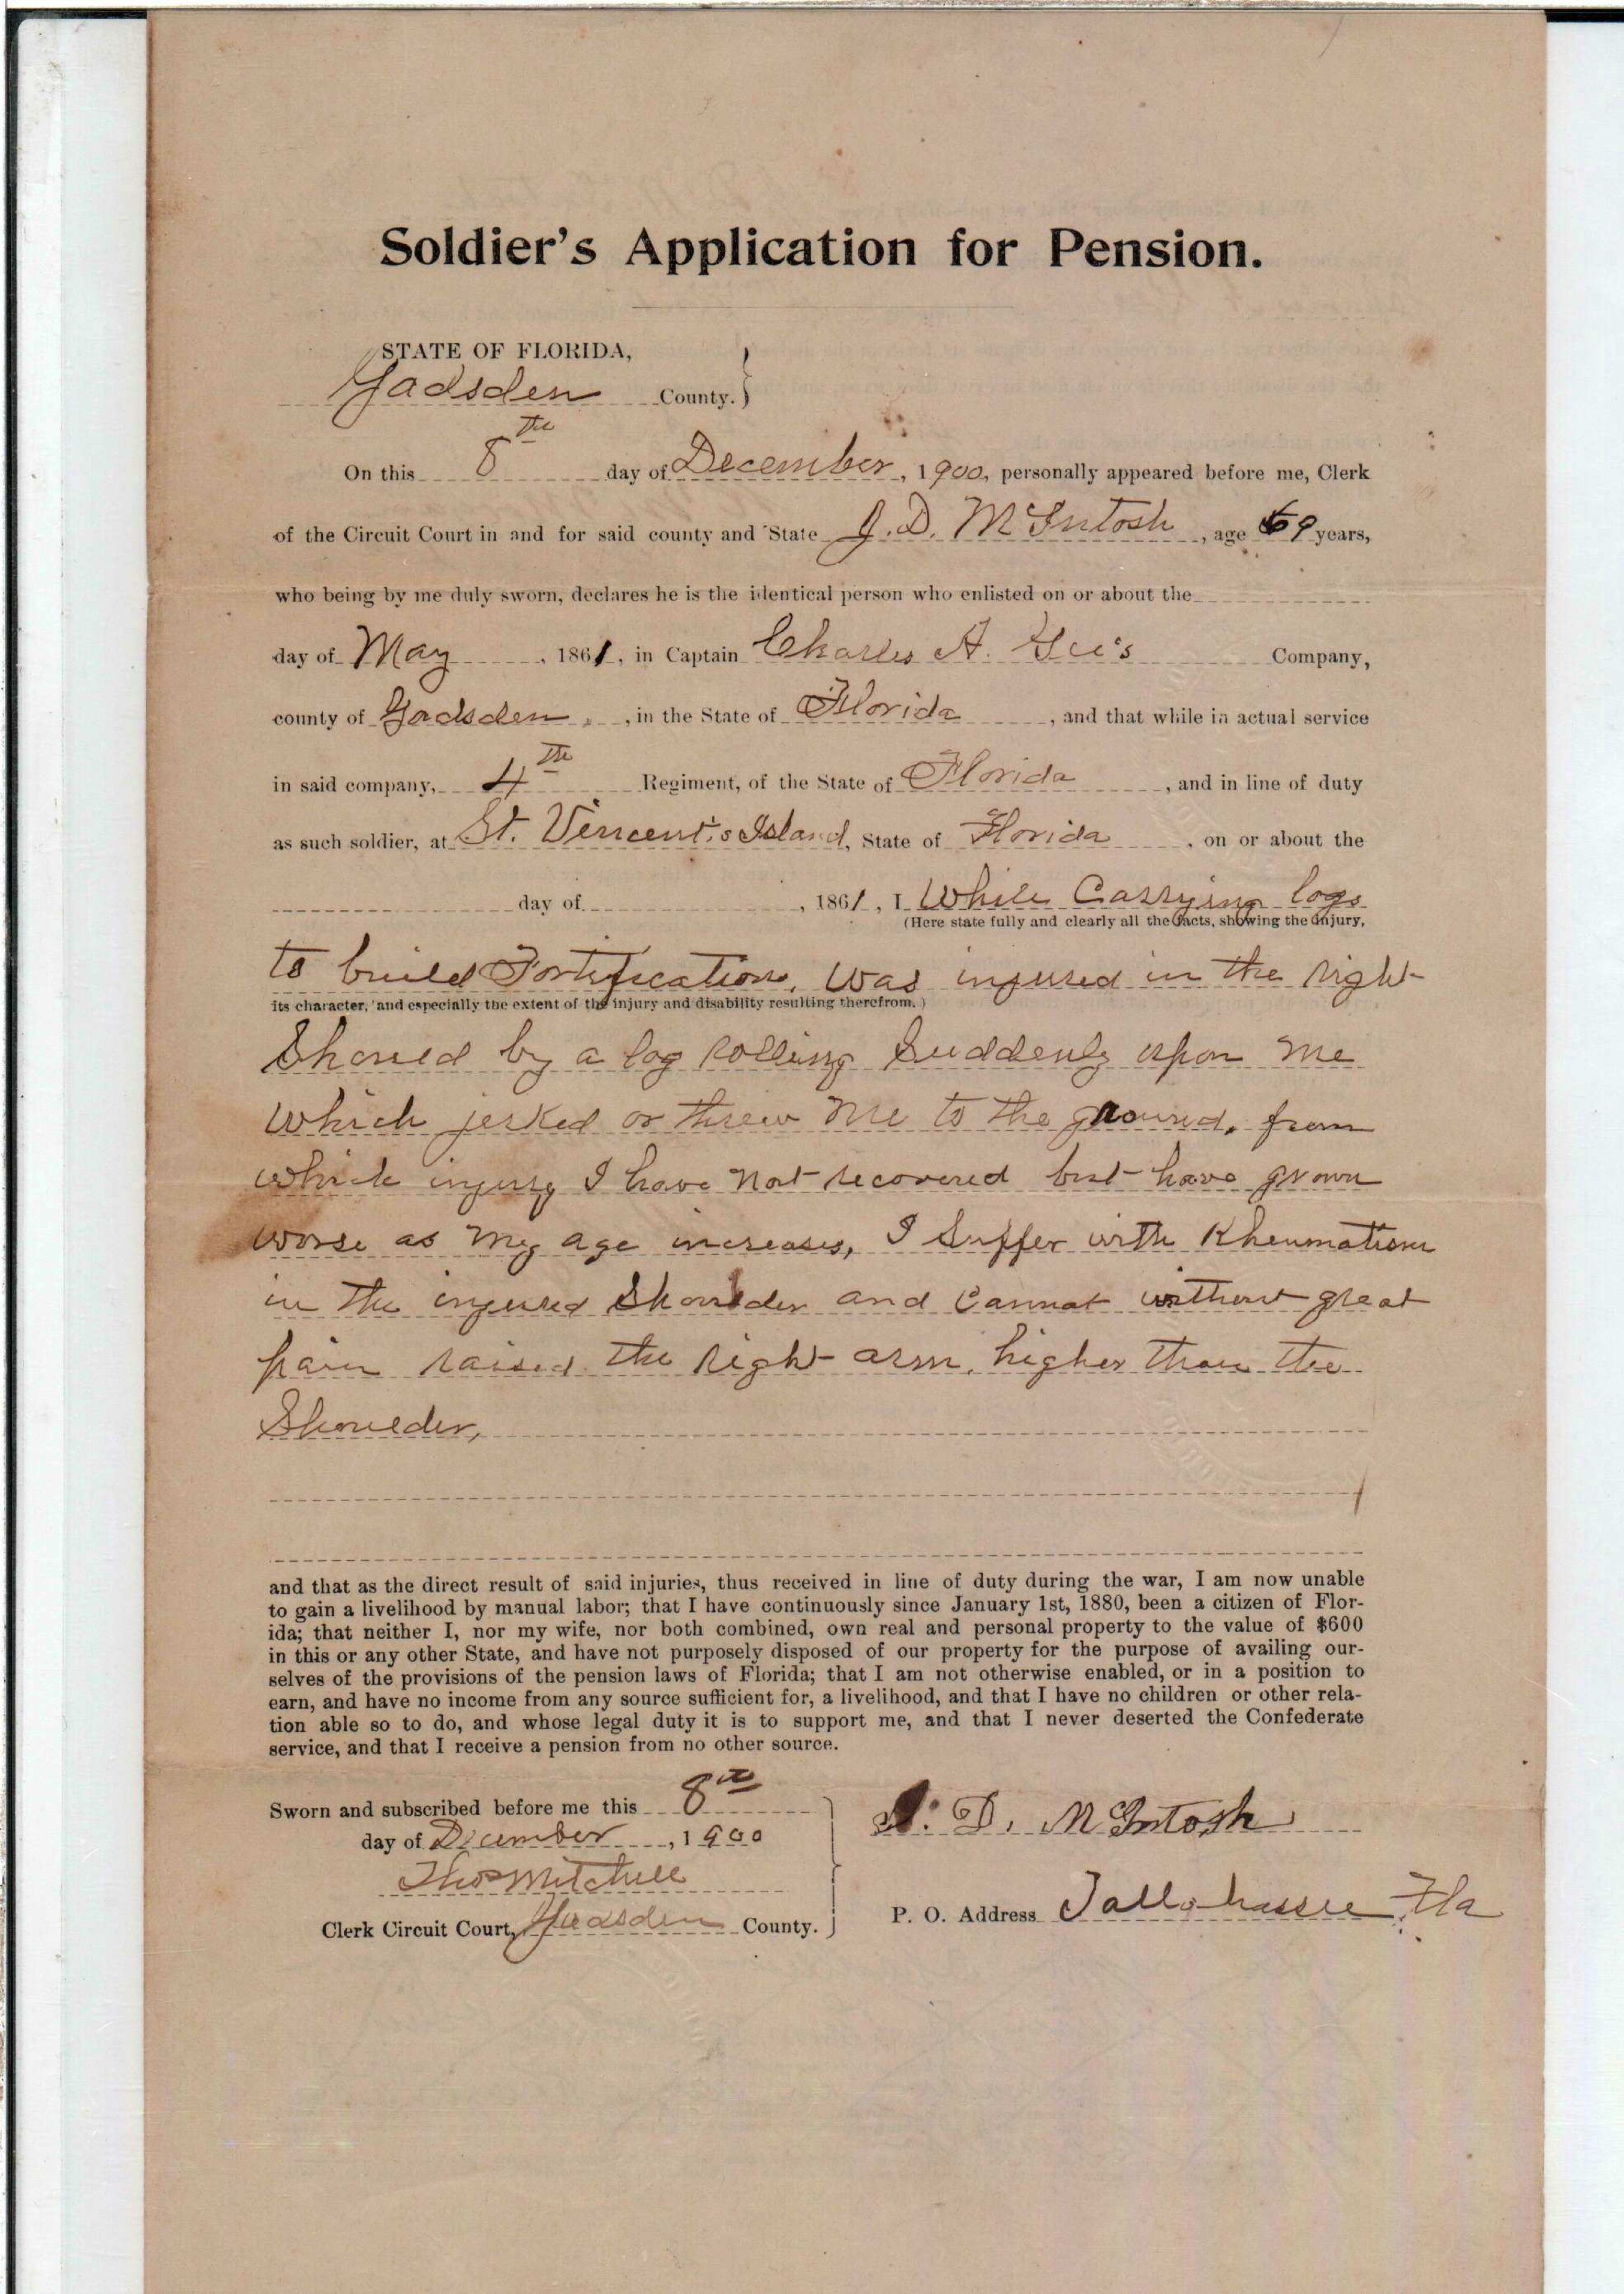 Soldier's Application for Pension.
STATE OF FLORIDA,
Gadsden County. }
On this 8th day of December, 1900, personally appeared before me, Clerk
of the Circuit Court in and for said county and State J. D. McIntosh, age 69 years,
who being by me duly sworn, declares he is the identical person who enlisted on or about the
day of May, 1861, in Captain Charles A. Gee's Company,
county of Gadsden, in the State of Florida, and that while in actual service
in said company, 4th Regiment, of the State of Florida, and in line of duty
as such soldier, at St. Vincent's Island, State of Florida, on or about the
day of , 1861, I While Carrying logs
(Here state fully and clearly all the facts, showing the injury,
to build Fortification, was injured in the right
its character, and especially the extent of the injury and disability resulting therefrom.)
by a log rolling Suddenly upon me
which jerked or threw me to the ground, from
which injury I have not recovered but have grown
worse as my age increases, I Suffer with Rheumatism
in the injured Shoulder and Cannot without great
pain raised the right arm, higher than the
Shoulder,
and that as the direct result of said injuries, thus received in line of duty during the war, I am now unable
to gain a livelihood by manual labor; that I have continuously since January 1st, 1880, been a citizen of Flor-
ida; that neither I, nor my wife, nor both combined, own real and personal property to the value of $600
in this or any other State, and have not purposely disposed of our property for the purpose of availing our-
selves of the provisions of the pension laws of Florida; that I am not otherwise enabled, or in a position to
earn, and have no income from any source sufficient for, a livelihood, and that I have no children or other rela-
tion able so to do, and whose legal duty it is to support me, and that I never deserted the Confederate
service, and that I receive a pension from no other source.
Sworn and subscribed before me this 8th
day of December, 1900
Thos Mitchell
Clerk Circuit Court, Gadsden County.
J. D. McIntosh
P. O. Address Tallahassee Fla